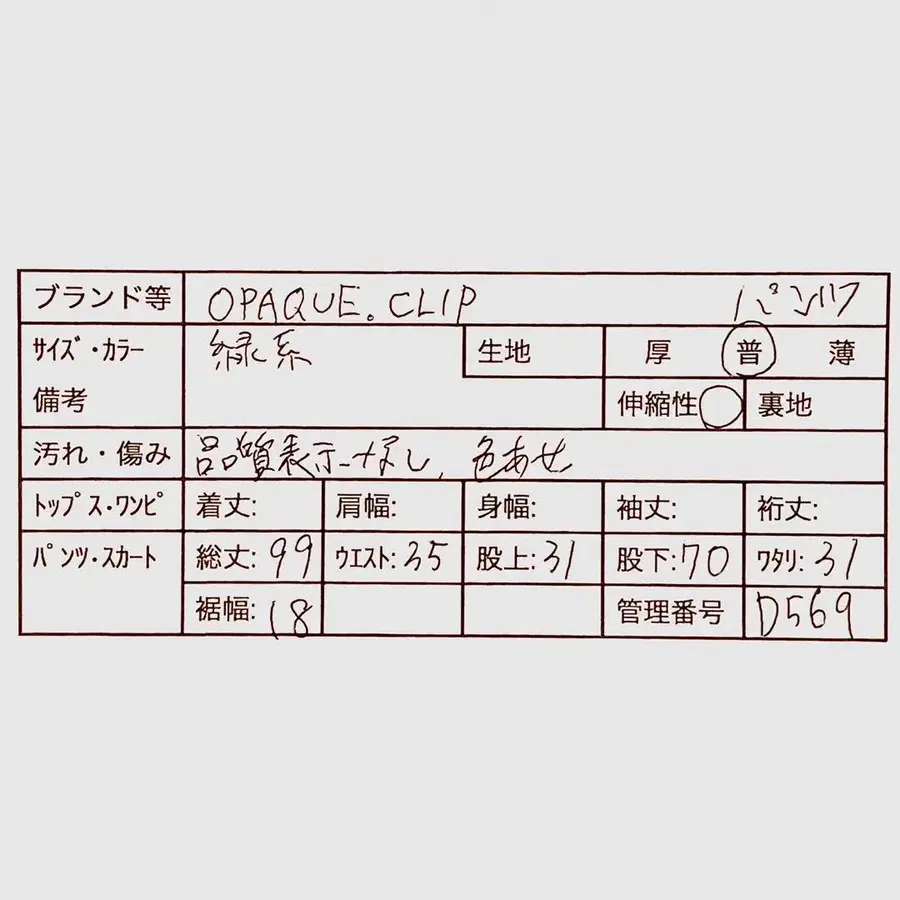 ブランド等 OPAQUE.CLIP パンツ
サイズ・カラー 緑系 生地 厚 普 薄
備考 伸縮性 ○ 裏地
汚れ・傷み 品質表示なし、色あせ
トップス・ワンピ 着丈: 肩幅: 身幅: 袖丈: 裄丈:
パンツ・スカート 総丈: 99 ウエスト: 35 股上: 31 股下: 70 ワタリ: 31
裾幅: 18 管理番号 D569